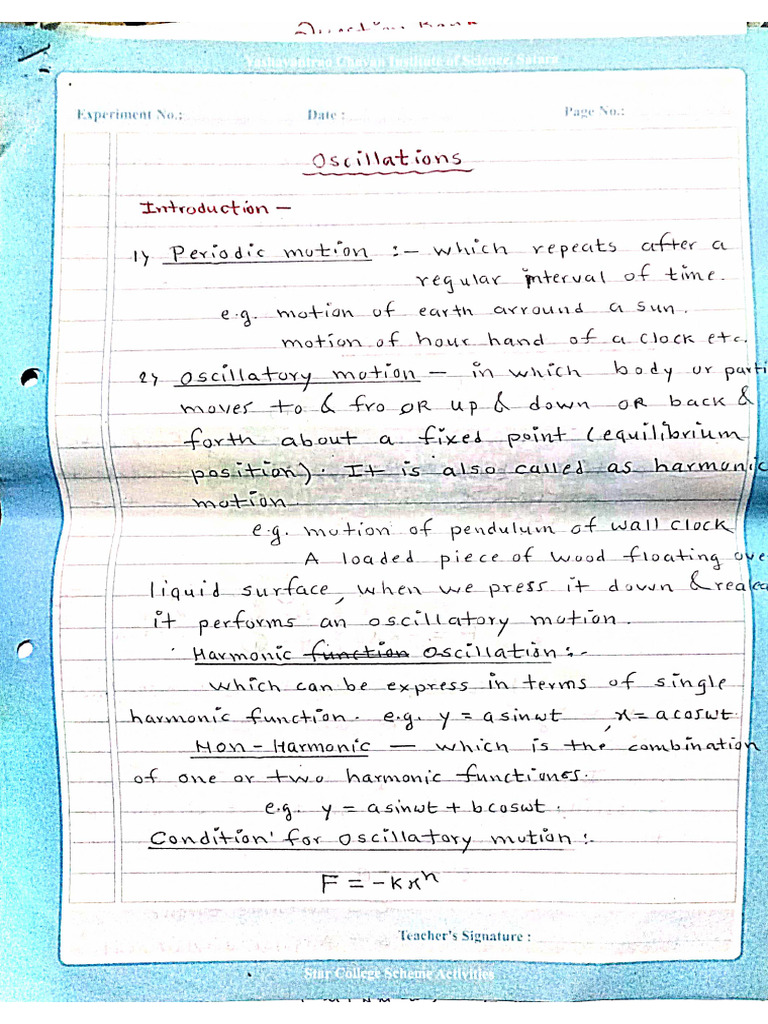 Yashavantrao Chavan Institute of Science, Satara
Experiment No.: Date : Page No.:
Oscillations
Introduction –
1) Periodic motion :- which repeats after a
regular interval of time.
e.g. motion of earth arround a sun.
motion of hour hand of a clock etc.
2) oscillatory motion – in which body or parti
moves to & fro OR up & down OR back &
forth about a fixed point (equilibrium
position). It is also called as harmonic
motion.
e.g. motion of pendulum of wall clock
A loaded piece of wood floating ove
liquid surface, when we press it down & realea
it performs an oscillatory motion.
Harmonic function oscillation :-
which can be express in terms of single
harmonic function. e.g. y = a sinωt , x = a cosωt.
Non-Harmonic — which is the combination
of one or two harmonic functiones.
e.g. y = a sinωt + b cosωt.
Condition for oscillatory motion :-
F = -kxⁿ
Teacher's Signature :
Star College Scheme Activities